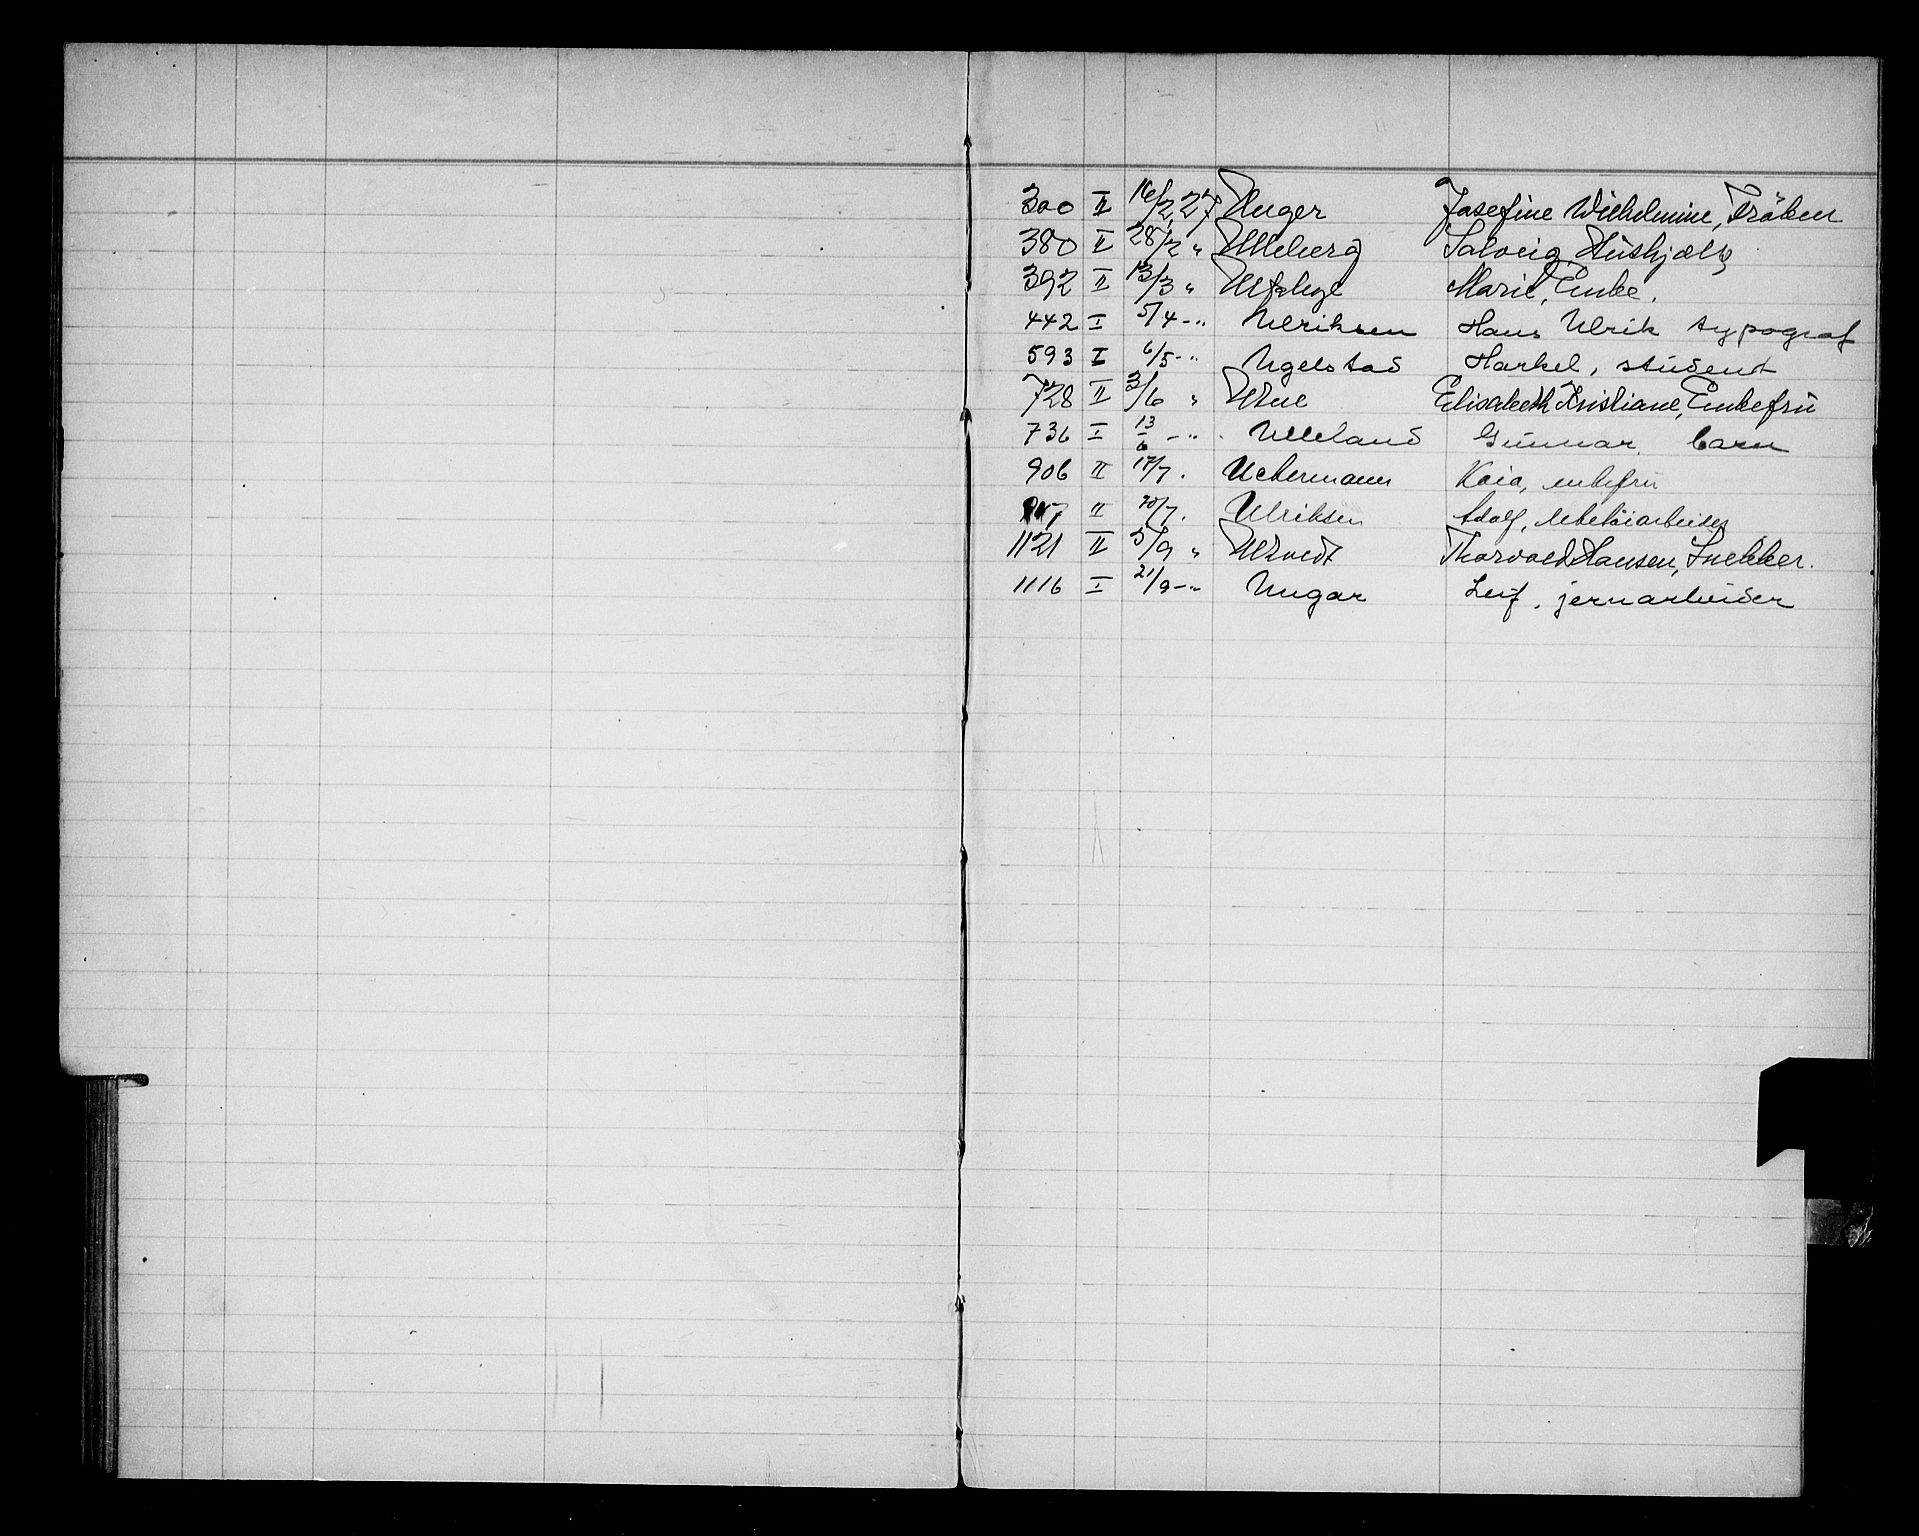 300 II 16/2 27 Unger Josefine Wilhelmine, Fröken
380 II 28/2 " Ulleberg Solveig, Hushjælp
392 II 13/3 " Marie, Enke.
442 I 5/4 -"- Ulriksen Hans Ulrik typograf
593 I 6/5 -"- Ugelstad student
728 II 3/6 " Utne Elisabeth Kristiane, Enkefru
736 I 13/6 -"- Ulleland Gunnar. barn
906 II 17/7. Uchermann Kaia, enkefru
II 20/7. Ulriksen Adolf,
1121 II 5/9 " Ultvedt Thorvald Hansen, Snekker.
1116 I 21/9 -"- Ungar Leif, jernarbeider